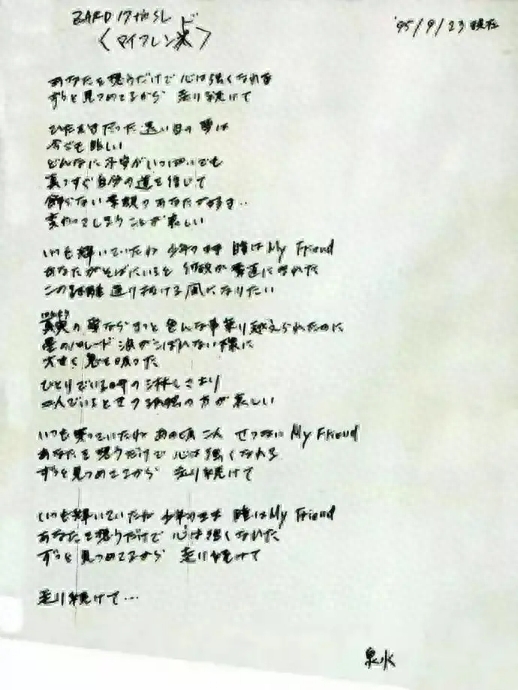 ZARD 17th SL
＜マイフレンド＞
'95/9/23 現在
あなたを想うだけで 心は強くなれる
ずっと見つめてるから 走り続けて
ひたむきだった 遠い日の夢は
今でも眩しい
どんなに不安がいっぱいでも
真っすぐ自分の道を信じて
飾らない素顔のあなたが好き‥
変わってしまうことが悲しい
いつも輝いていたね 少年のまま 瞳はMy Friend
あなたがそばにいると なぜか素直になれた
この距離通り抜ける風になりたい
真実の夢なら きっと 色んな事乗り越えられたのに
星のパレード 涙がこぼれない様に
大きく息を吸った
ひとりでいる時の淋しさより
二人でいるときの孤独の方が哀しい
いつも笑っていたね あの頃 二人 せつないMy Friend
あなたを想うだけで 心は強くなれる
ずっと見つめてるから 走り続けて
いつも輝いていたね 少年のまま 瞳はMy Friend
あなたを想うだけで 心は強くなれた
ずっと見つめてるから 走り続けて
走り続けて…
泉水